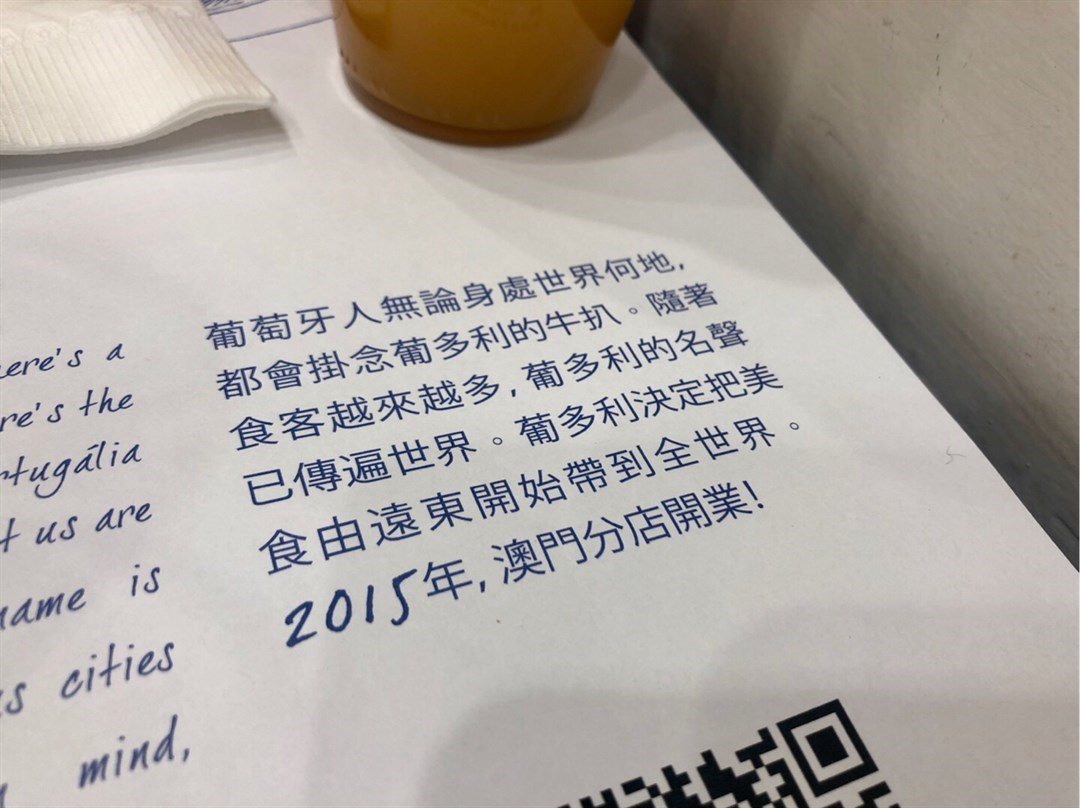 ere's a
re's the
rtugália
t us are
name is
s cities
mind,
葡萄牙人無論身處世界何地,
都會掛念葡多利的牛扒。隨著
食客越來越多,葡多利的名聲
已傳遍世界。葡多利決定把美
食由遠東開始帶到全世界。
2015年,澳門分店開業!